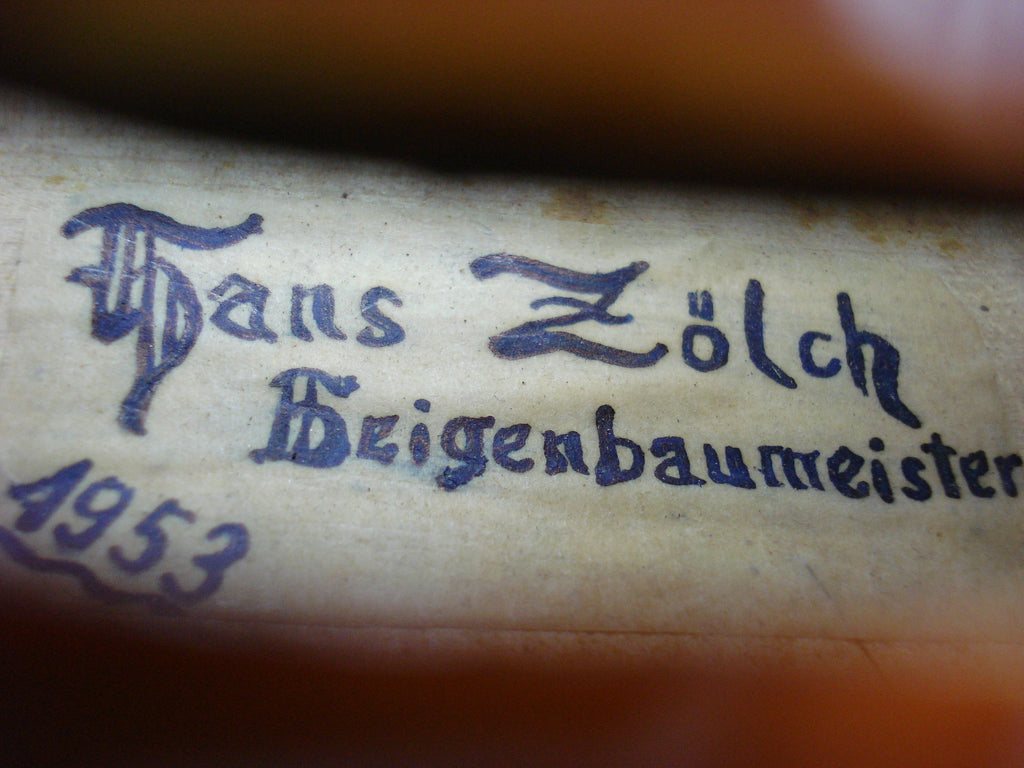 Hans Zölch
Geigenbaumeister
1953